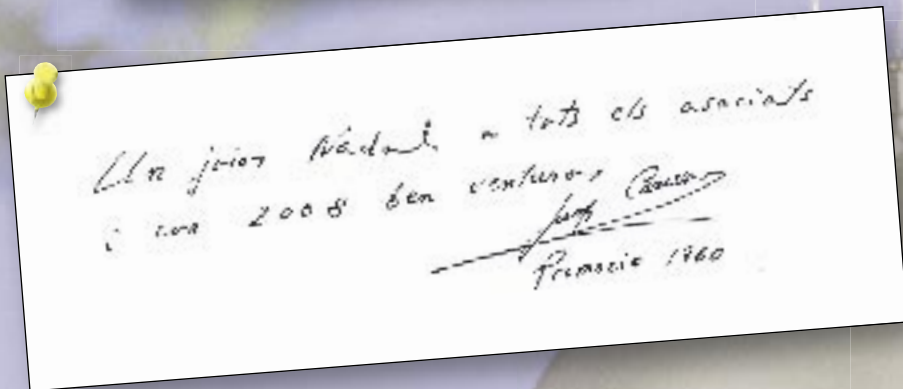 Un joios Nadal a tots els asociats
i un 2008 ben venturos
Promocio 1960